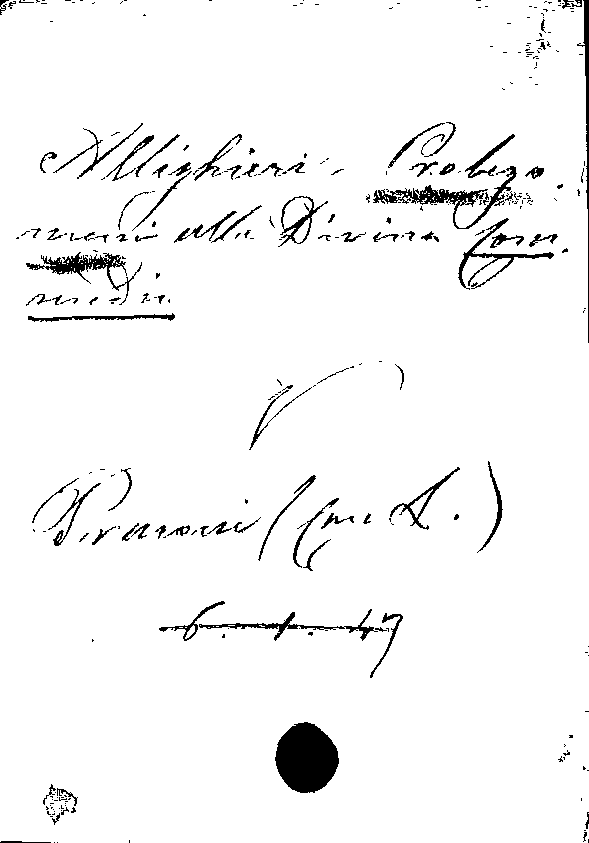 Allighieri. Prolego.
meni alla Divina Com.
media
V
6. 1. 47